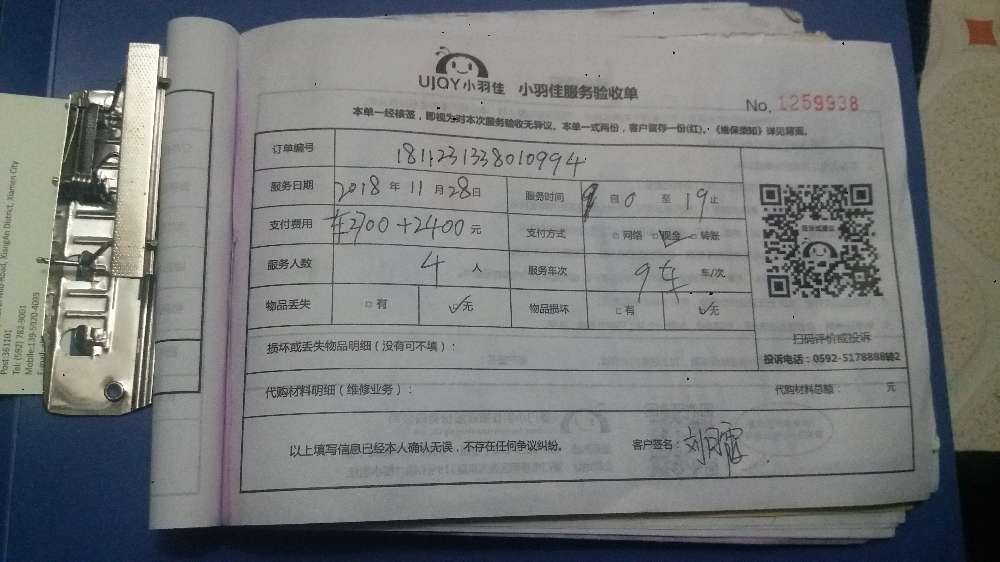 UJOY小羽佳 小羽佳服务验收单
No. 1259938
本单一经核签，即视为对本次服务验收无异议。本单一式两份，客户留存一份(红)。《维保须知》详见背面。
订单编号 1811231338010994
服务日期 2018年11月28日 服务时间 自0至19止
支付费用 车2700+2400元 支付方式 □网络 ☑现金 □转账
服务人数 4人 服务车次 9车 车/次
物品丢失 □有 ☑无 物品损坏 □有 ☑无
扫码评价或投诉
损坏或丢失物品明细（没有可不填）：
投诉电话：0592-5178888转2
代购材料明细（维修业务）： 代购材料总额： 元
以上填写信息已经本人确认无误，不存在任何争议纠纷。 客户签名：
Road, XiangAn District, Xiamen City
Post:361101
Tel: (592) 782-9001
Mobile:139-5920-4009